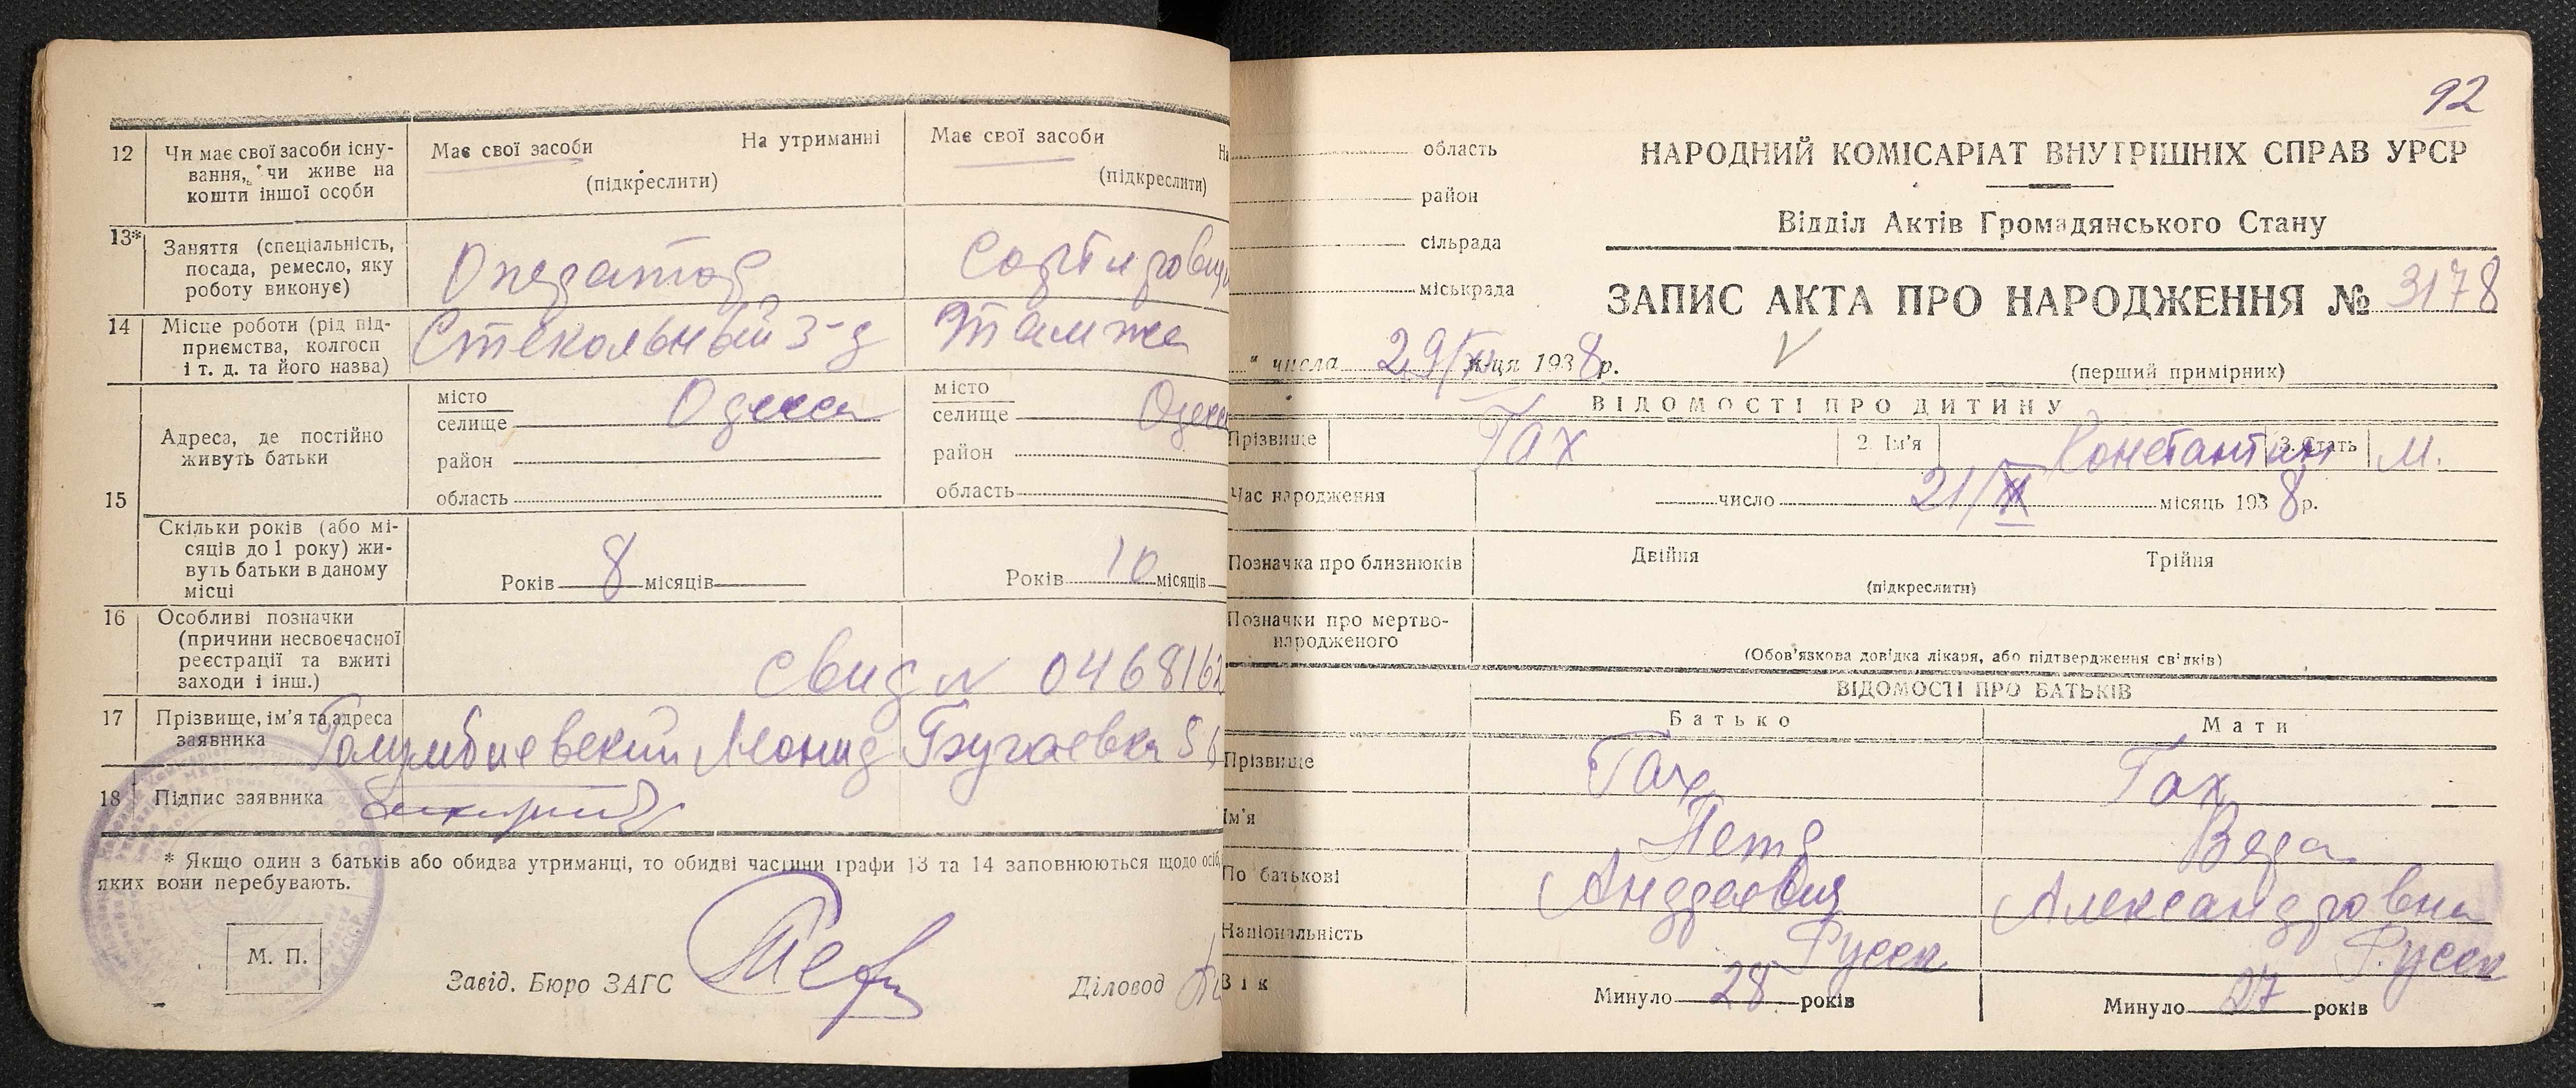 12 Чи має свої засоби існу-
вання, чи живе на
кошти іншої особи
Має свої засоби На утриманні
(підкреслити)
Має свої засоби
(підкреслити)
13* Заняття (спеціальність,
посада, ремесло, яку
роботу виконує)
Оператор
14 Місце роботи (рід під-
приємства, колгосп
і т. д. та його назва)
Стекольный з-д
Там же
15 Адреса, де постійно
живуть батьки
місто
селище Одесса
район
область
місто
селище Одесс
район
область
Скільки років (або мі-
сяців до 1 року) жи-
вуть батьки в даному
місці
Років 8 місяців
Років 10 місяців
16 Особливі позначки
(причини несвоєчасної
реєстрації та вжиті
заходи і інш.)
Свид N 0468162
17 Прізвище, ім'я та адреса
заявника
Голумбиевский Леонид Бугаевка 56
18 Підпис заявника
* Якщо один з батьків або обидва утриманці, то обидві частини графи 13 та 14 заповнюються щодо осіб,
яких вони перебувають.
М. П.
Завід. Бюро ЗАГС
Діловод
92
область
район
сільрада
міськрада
НАРОДНИЙ КОМІСАРІАТ ВНУТРІШНІХ СПРАВ УРСР
Відділ Актів Громадянського Стану
ЗАПИС АКТА ПРО НАРОДЖЕННЯ № 3178
" числа 29/XI м-ця 1938 р.
(перший примірник)
ВІДОМОСТІ ПРО ДИТИНУ
Прізвище Гах 2. Ім'я Константин 3. Стать М.
Час народження число 21/XI місяць 1938 р.
Позначка про близнюків Двійня Трійня
(підкреслити)
Позначки про мертво-
народженого
(Обов'язкова довідка лікаря, або підтвердження свідків)
ВІДОМОСТІ ПРО БАТЬКІВ
Батько Мати
Прізвище Гах Гах
Ім'я Петр Вера
По батькові Андреевич Александровна
Національність Русск Русск
Вік Минуло 28 років Минуло 27 років